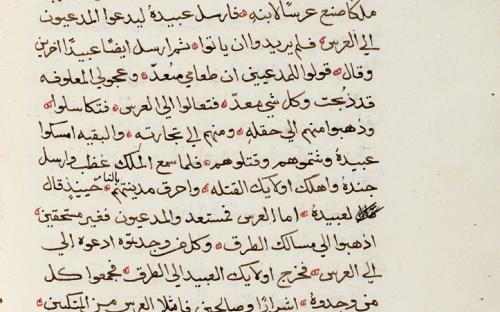 ملكا صنع عرسًا لابنه فارسل عبيده ليدعوا المدعيون
الي العرس فلم يريدوا ان ياتوا ثم ارسل ايضًا عبيدًا اخرين
وقال قولوا للمدعيين ان طعامي معدّ وعجولي المعلوفه
قد ذبحت وكل شي معدّ فتعالوا الي العرس فتكاسلوا
وذهبوا منهم الي حقله ومنهم الي تجارته والبقيه امسكوا
عبيده وشتموهم وقتلوهم فلما سمع الملك غضب وارسل
جنده واهلك اولايك القتله واحرق مدينتهم بالنار حينيذٍ قال
لعبيده اما العرس فمستعد والمدعيون فغير مستحقين
اذهبوا الي مسالك الطرق وكلمن وجدتموه ادعوه الي
الي العرس فخرج اولايك العبيد الي الطرق فجمعوا كل
من وجدوه اشرارًا وصالحين فامتلا العرس من المتكيين